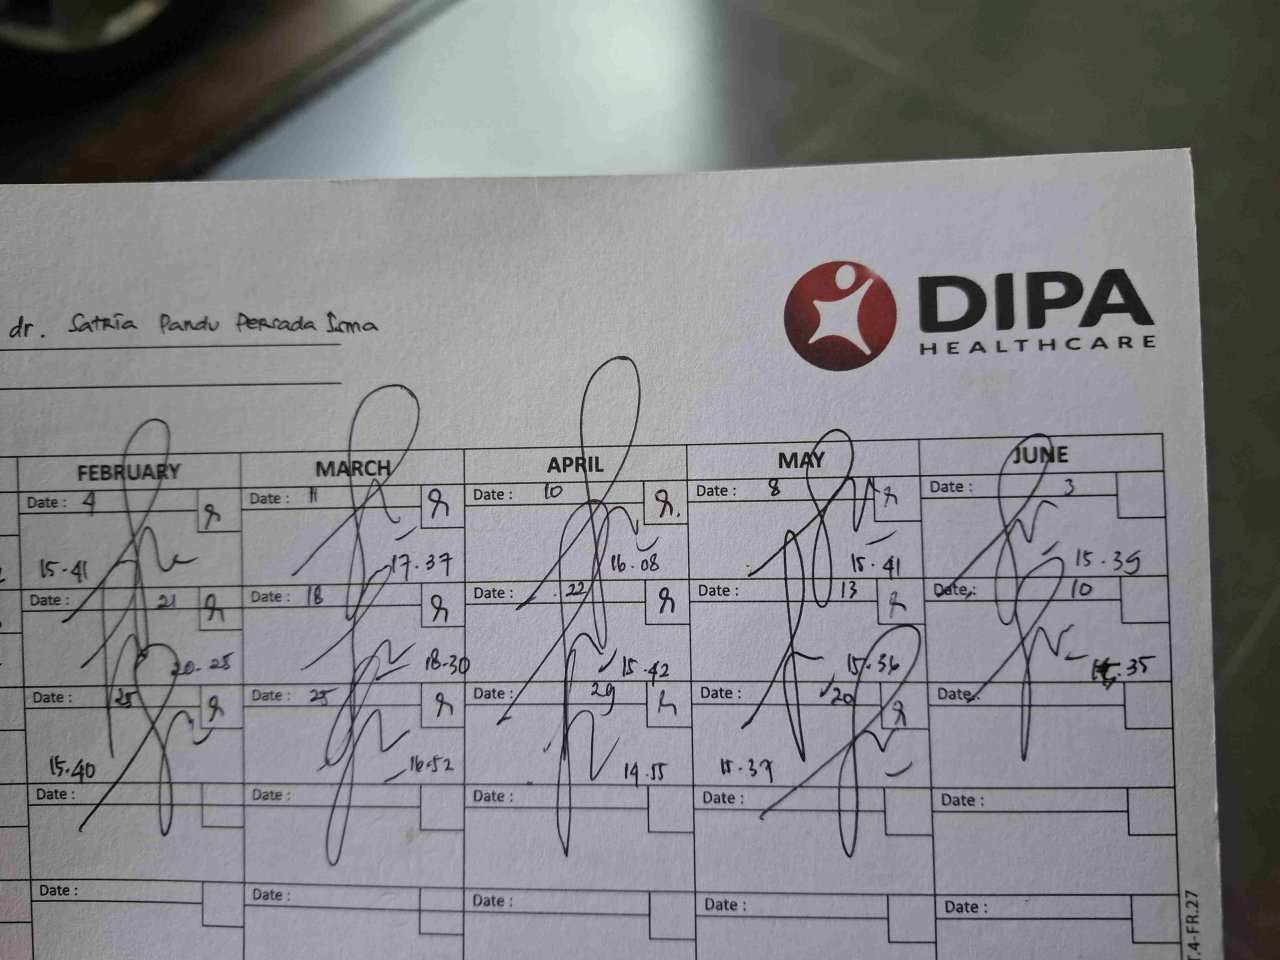 DIPA
HEALTHCARE
dr. Satria Pandu Persada Isma
FEBRUARY MARCH APRIL MAY JUNE
Date : 4 Date : 11 Date : 10 Date : 8 Date : 3
15.41 17.37 16.08 15.41 15.39
Date : 21 Date : 18 Date : 22 Date : 13 Date : 10
20.25 18.30 15.42 15.36 35
Date : 25 Date : 25 Date : 29 Date : 20 Date :
15.40 16.52 14.55 15.37
Date : Date : Date : Date : Date :
Date : Date : Date : Date : Date :
T.4-FR.27